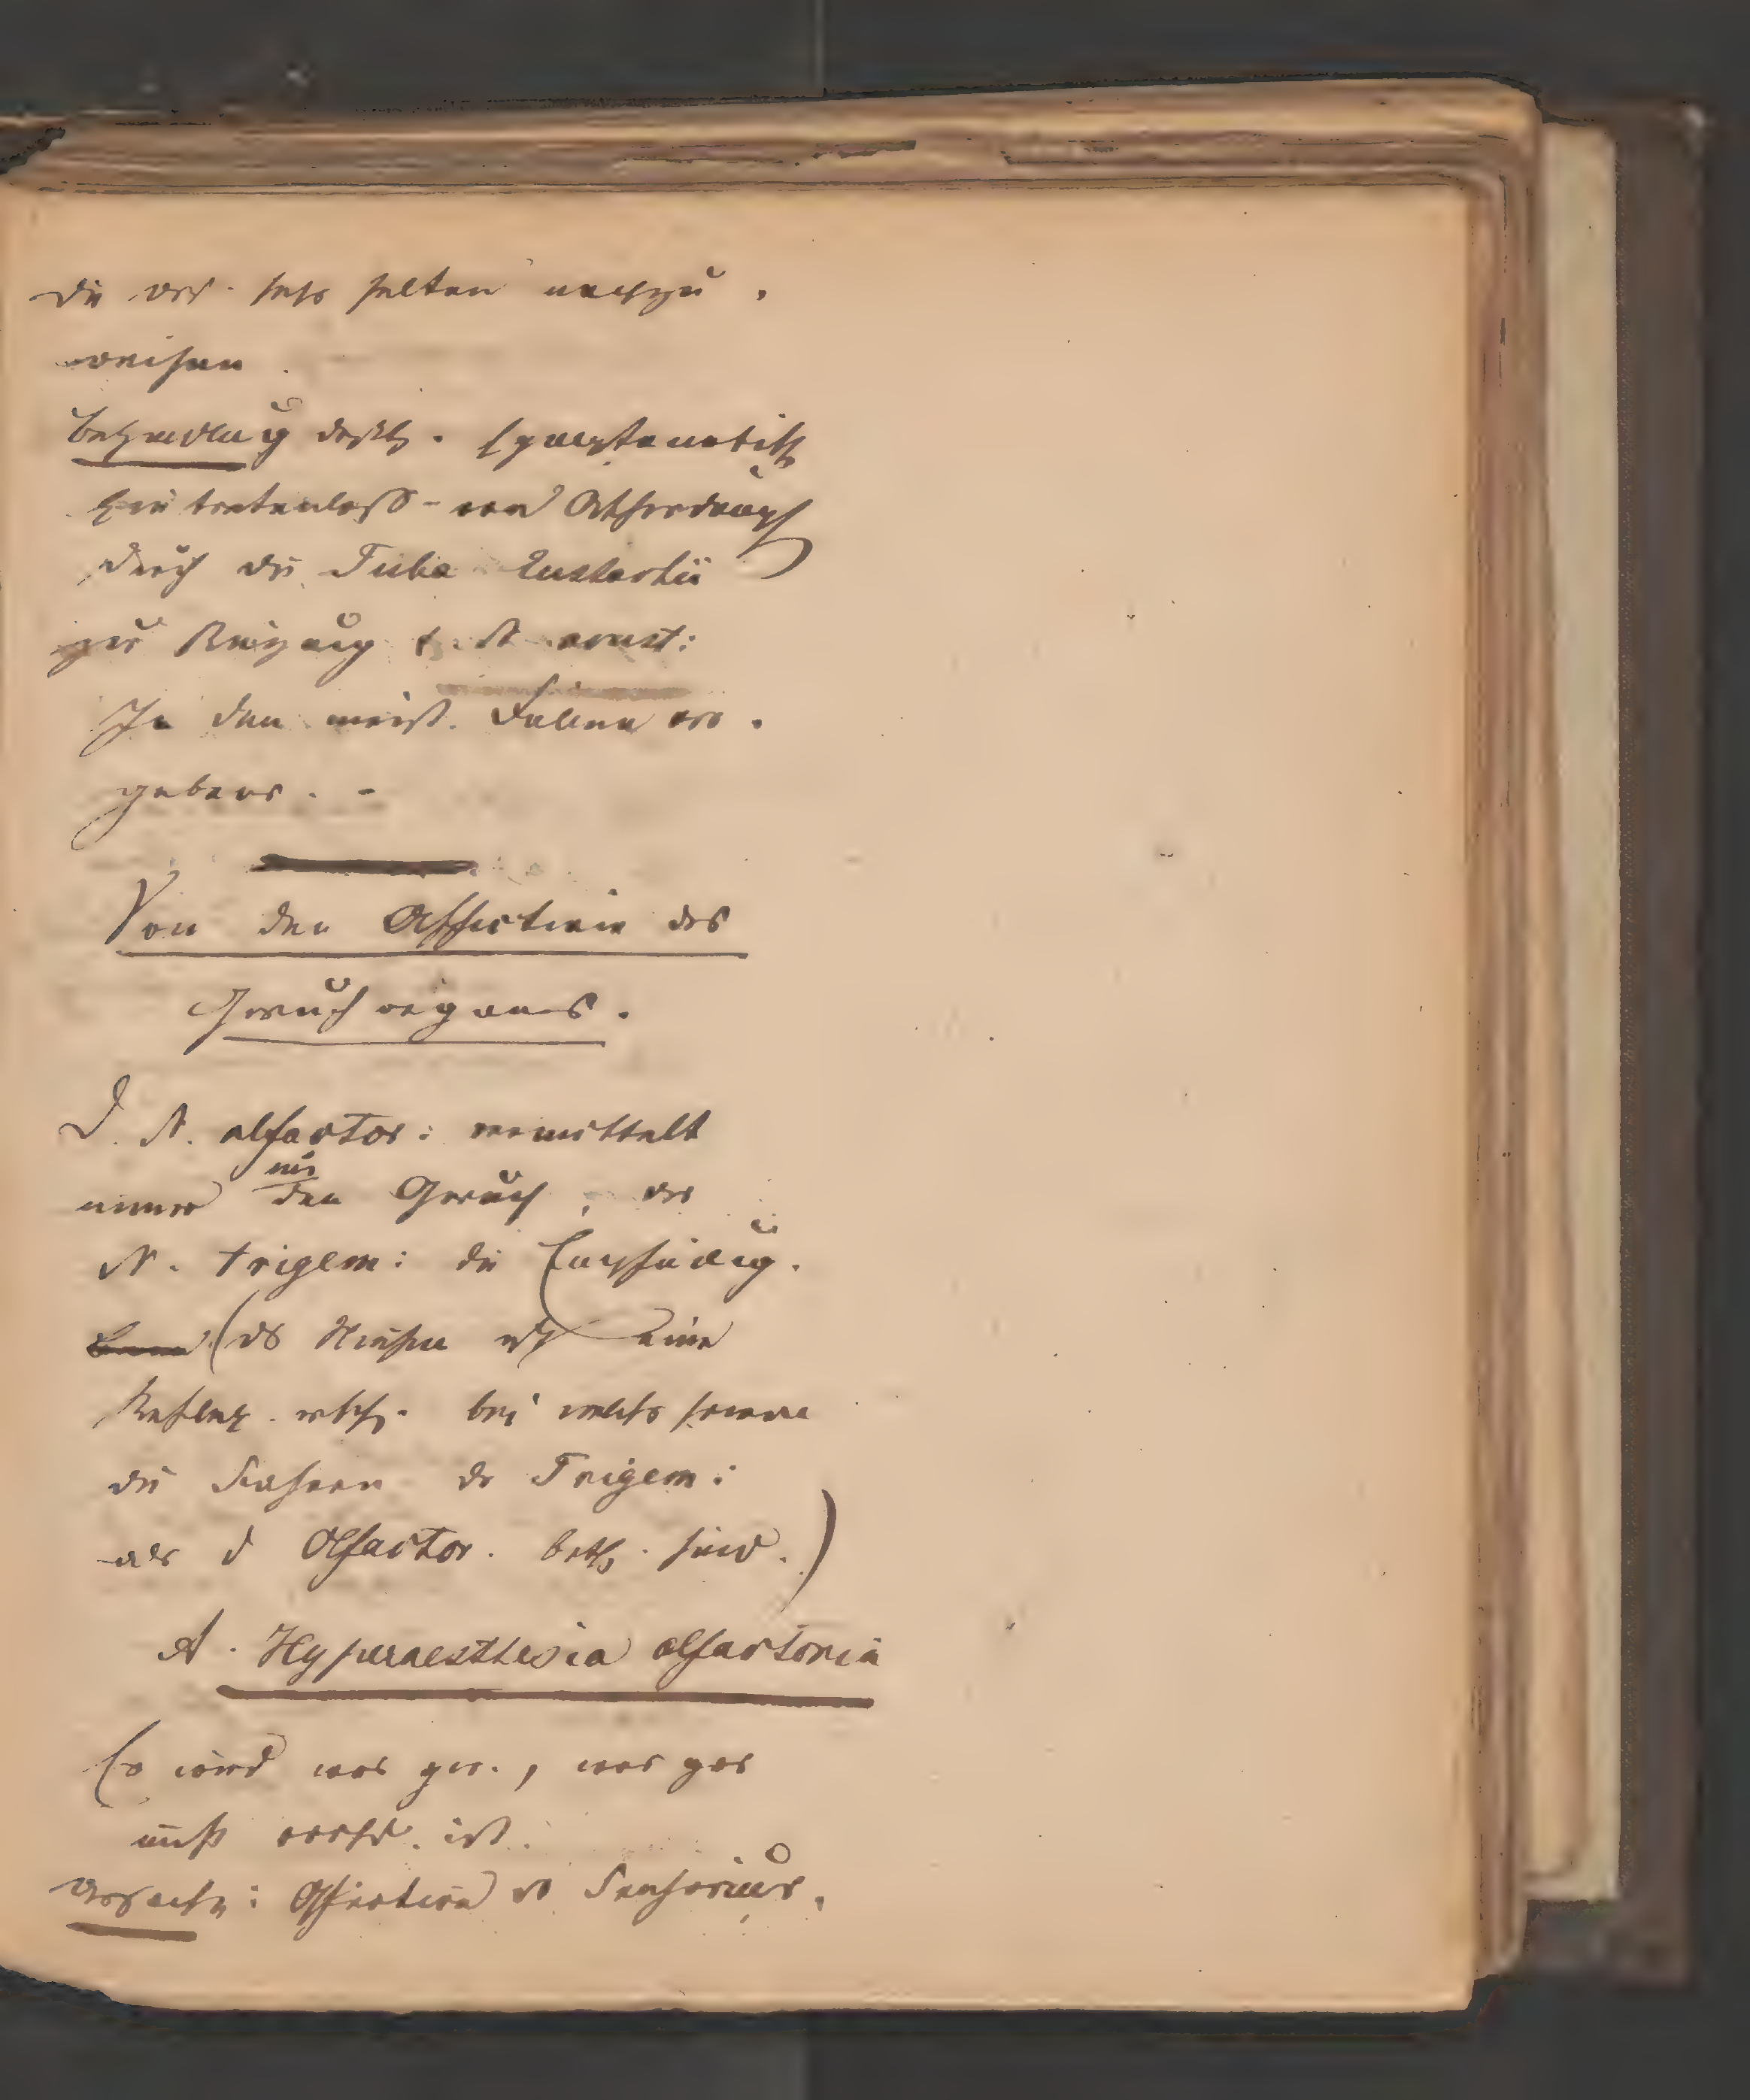 die Urs. sehr selten nachzu-
weisen.
Behandlung deshlb. symptomatisch
Hineintretenlass. von Aetherdampf
durch die Tuba Eustachii
zur Reizung d. N. acust:
In den meist. Fällen ver-
gebens. -
Von den Affectionen des
Geruchorgans.
D. N. olfactor: vermittelt
immer nur den Geruch, der
N. trigem: die Empfindung.
(das Niesen ist eine
Reflex. ersch. bei welcher sowohl
die Fasern des Trigem:
als d Olfactor. beth. sind.)
A. Hyperaesthesia olfactoria
Es wird was ger., was gar
nicht vorhd. ist.
Ursache: Affection des Sensoriums,